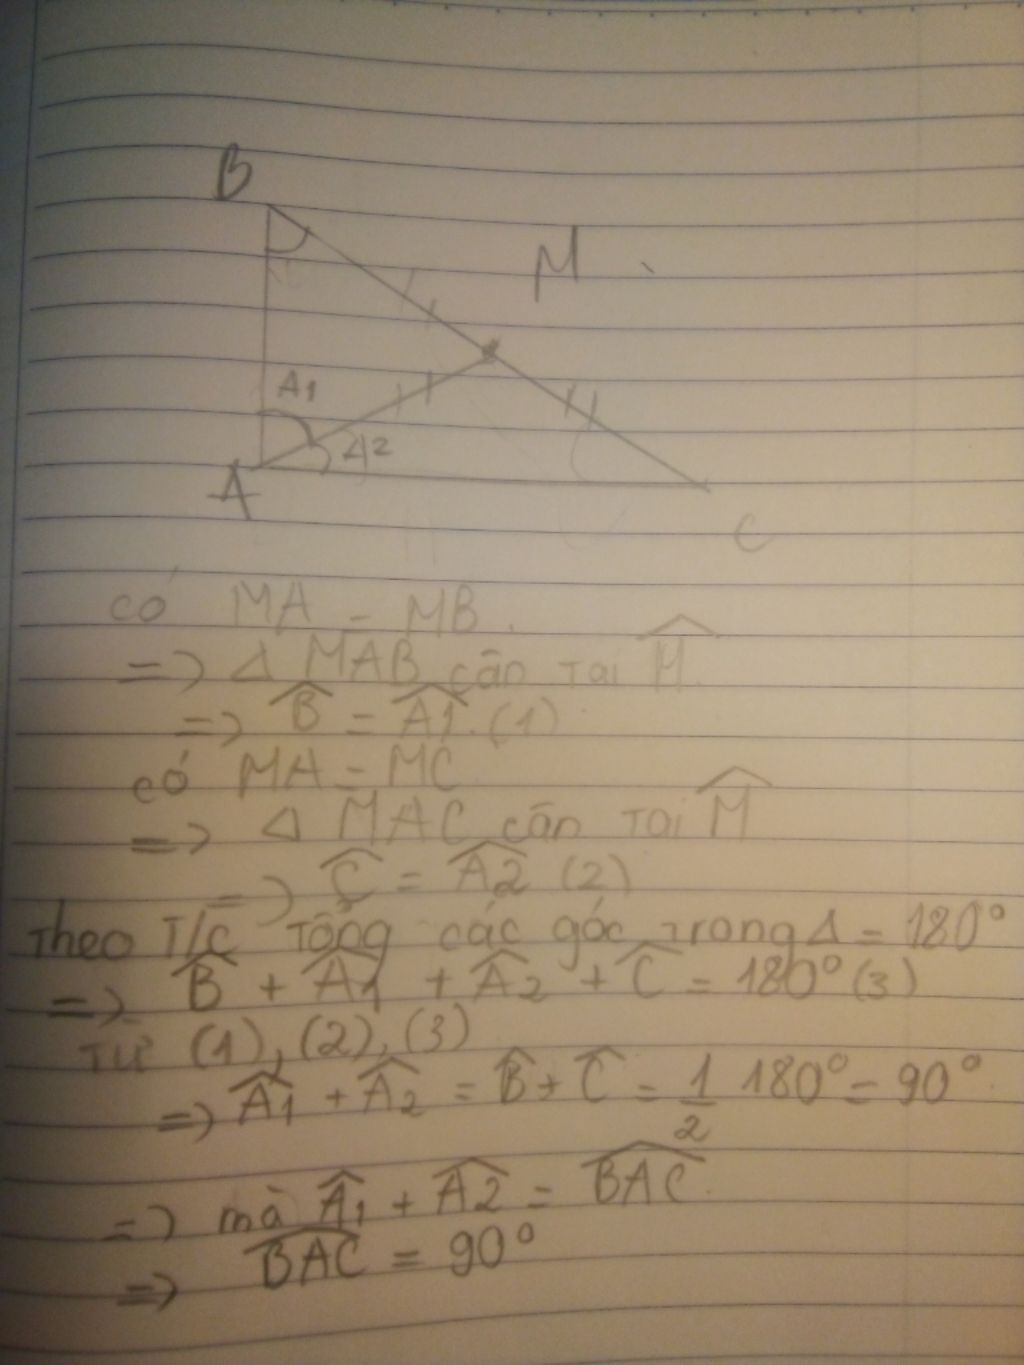 B
M
A1
A2
A
C
có MA = MB.
=> Δ MAB cân tại M̂.
=> B̂ = Â1.(1)
có MA = MC
=> Δ MAC cân tại M̂
=> Ĉ = Â2 (2)
Theo T/c Tổng các góc trong Δ = 180°
=> B̂ + Â1 + Â2 + Ĉ = 180° (3)
Từ (1), (2), (3)
=> Â1 + Â2 = B̂ + Ĉ = 1/2 180° = 90°
=> mà Â1 + Â2 = B̂AC.
=> B̂AC = 90°